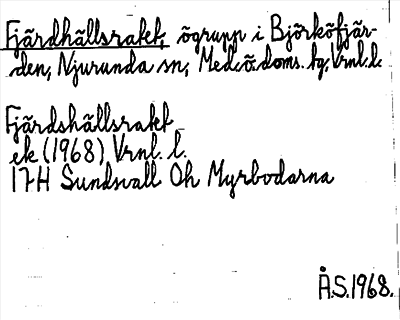 Fjärdhällsrakt, ögrupp i Björköfjär-
den, Njurunda sn, Med.ö.doms. tg. Vrnl.l.
Fjärdshällsrakt
ek (1968) Vrnl. l.
17H Sundsvall Oh Myrbodarna
Å.S.1968.